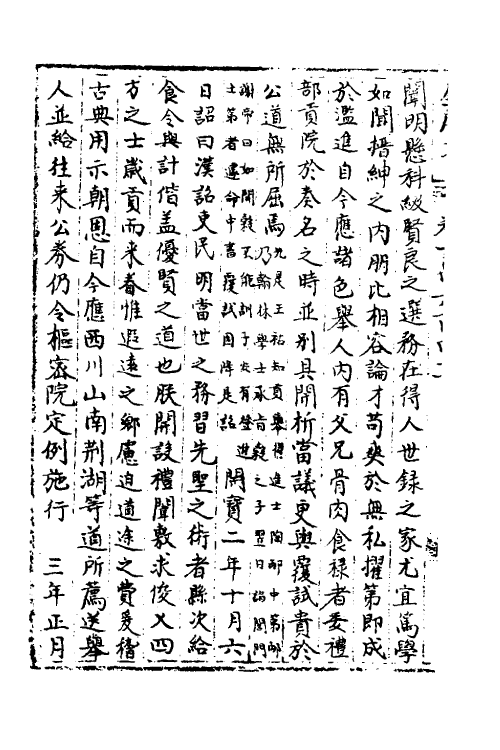 聞明懸科級賢良之選務在得人世錄之家尤宜篤學
如聞搢紳之內朋比相容論才苟爽於無私擢第即成
於濫進自今應諸色舉人內有父兄骨肉食祿者委禮
部貢院於奏名之時並別具開析當議更與覆試貴於
公道無所屈焉
先是王祐知貢舉得進士陶邴中第邴
乃翰林學士承旨穀之子翌日詣閤門
謝帝曰如聞穀不能訓子安有登進
士第者遽命中書覆試因降是詔
開寶二年十月六
日詔曰漢詔吏民明當世之務習先聖之術者縣次給
食令與計偕盖優賢之道也朕開設禮闈敷求俊乂四
方之士歲貢而来眷惟遐遠之鄉慮迫道途之費爰稽
古典用示朝恩自今應西川山南荆湖等道所薦送舉
人並給往来公券仍令樞密院定例施行　三年正月